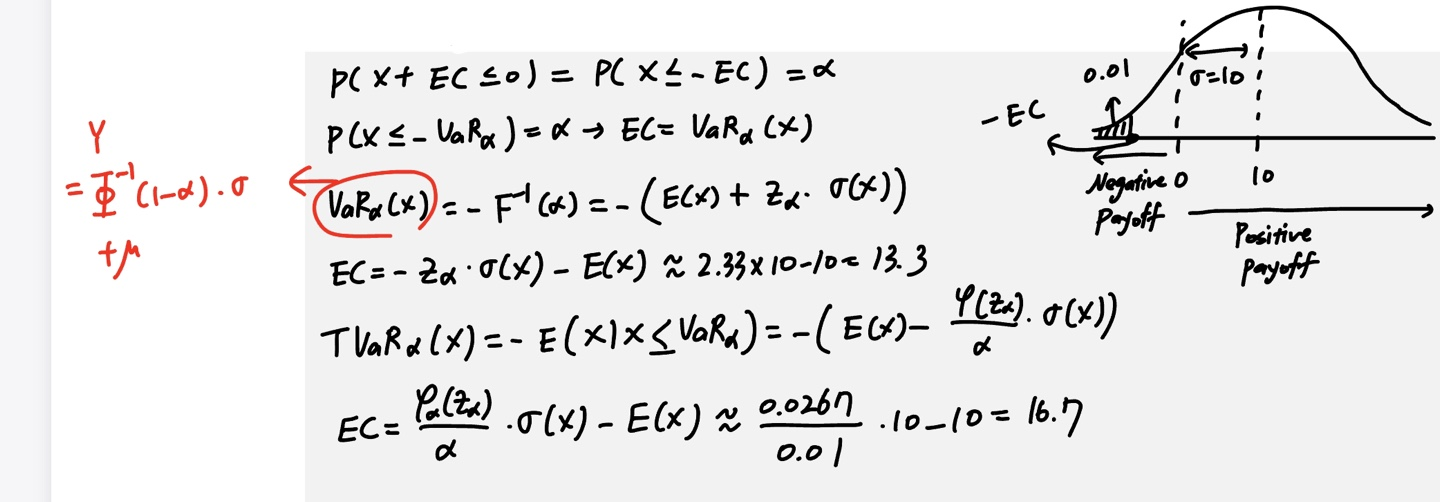 P(X + EC ≤ 0) = P(X ≤ - EC) = α
P(X ≤ - VaRα) = α → EC = VaRα(X)
VaRα(X) = - F⁻¹(α) = - (E(X) + Zα · σ(X))
EC = - Zα · σ(X) - E(X) ≈ 2.33 × 10 - 10 = 13.3
TVaRα(X) = - E(X | X ≤ VaRα) = - (E(X) - φ(Zα)/α · σ(X))
EC = φα(Zα)/α · σ(X) - E(X) ≈ 0.0267/0.01 · 10 - 10 = 16.7
Y
= Φ⁻¹(1-α) · σ
+ μ
0.01
σ=10
- EC
Negative Payoff
0
10
Positive Payoff